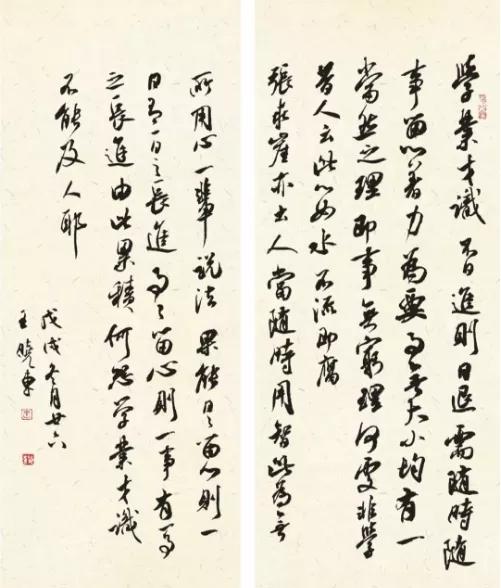 學業才識不日進則日退需隨時隨
事留心著力為要事無大小均有一
當然之理即事無窮理何處非學
昔人云此心如水不流即腐
張乖崖亦云人當隨時用智此為無
所用心一輩說法果能日日留心則一
日有一日之長進事事留心則一事有事
之長進由此累積何患學業才識
不能及人耶
戊戌冬月廿六
王曉東